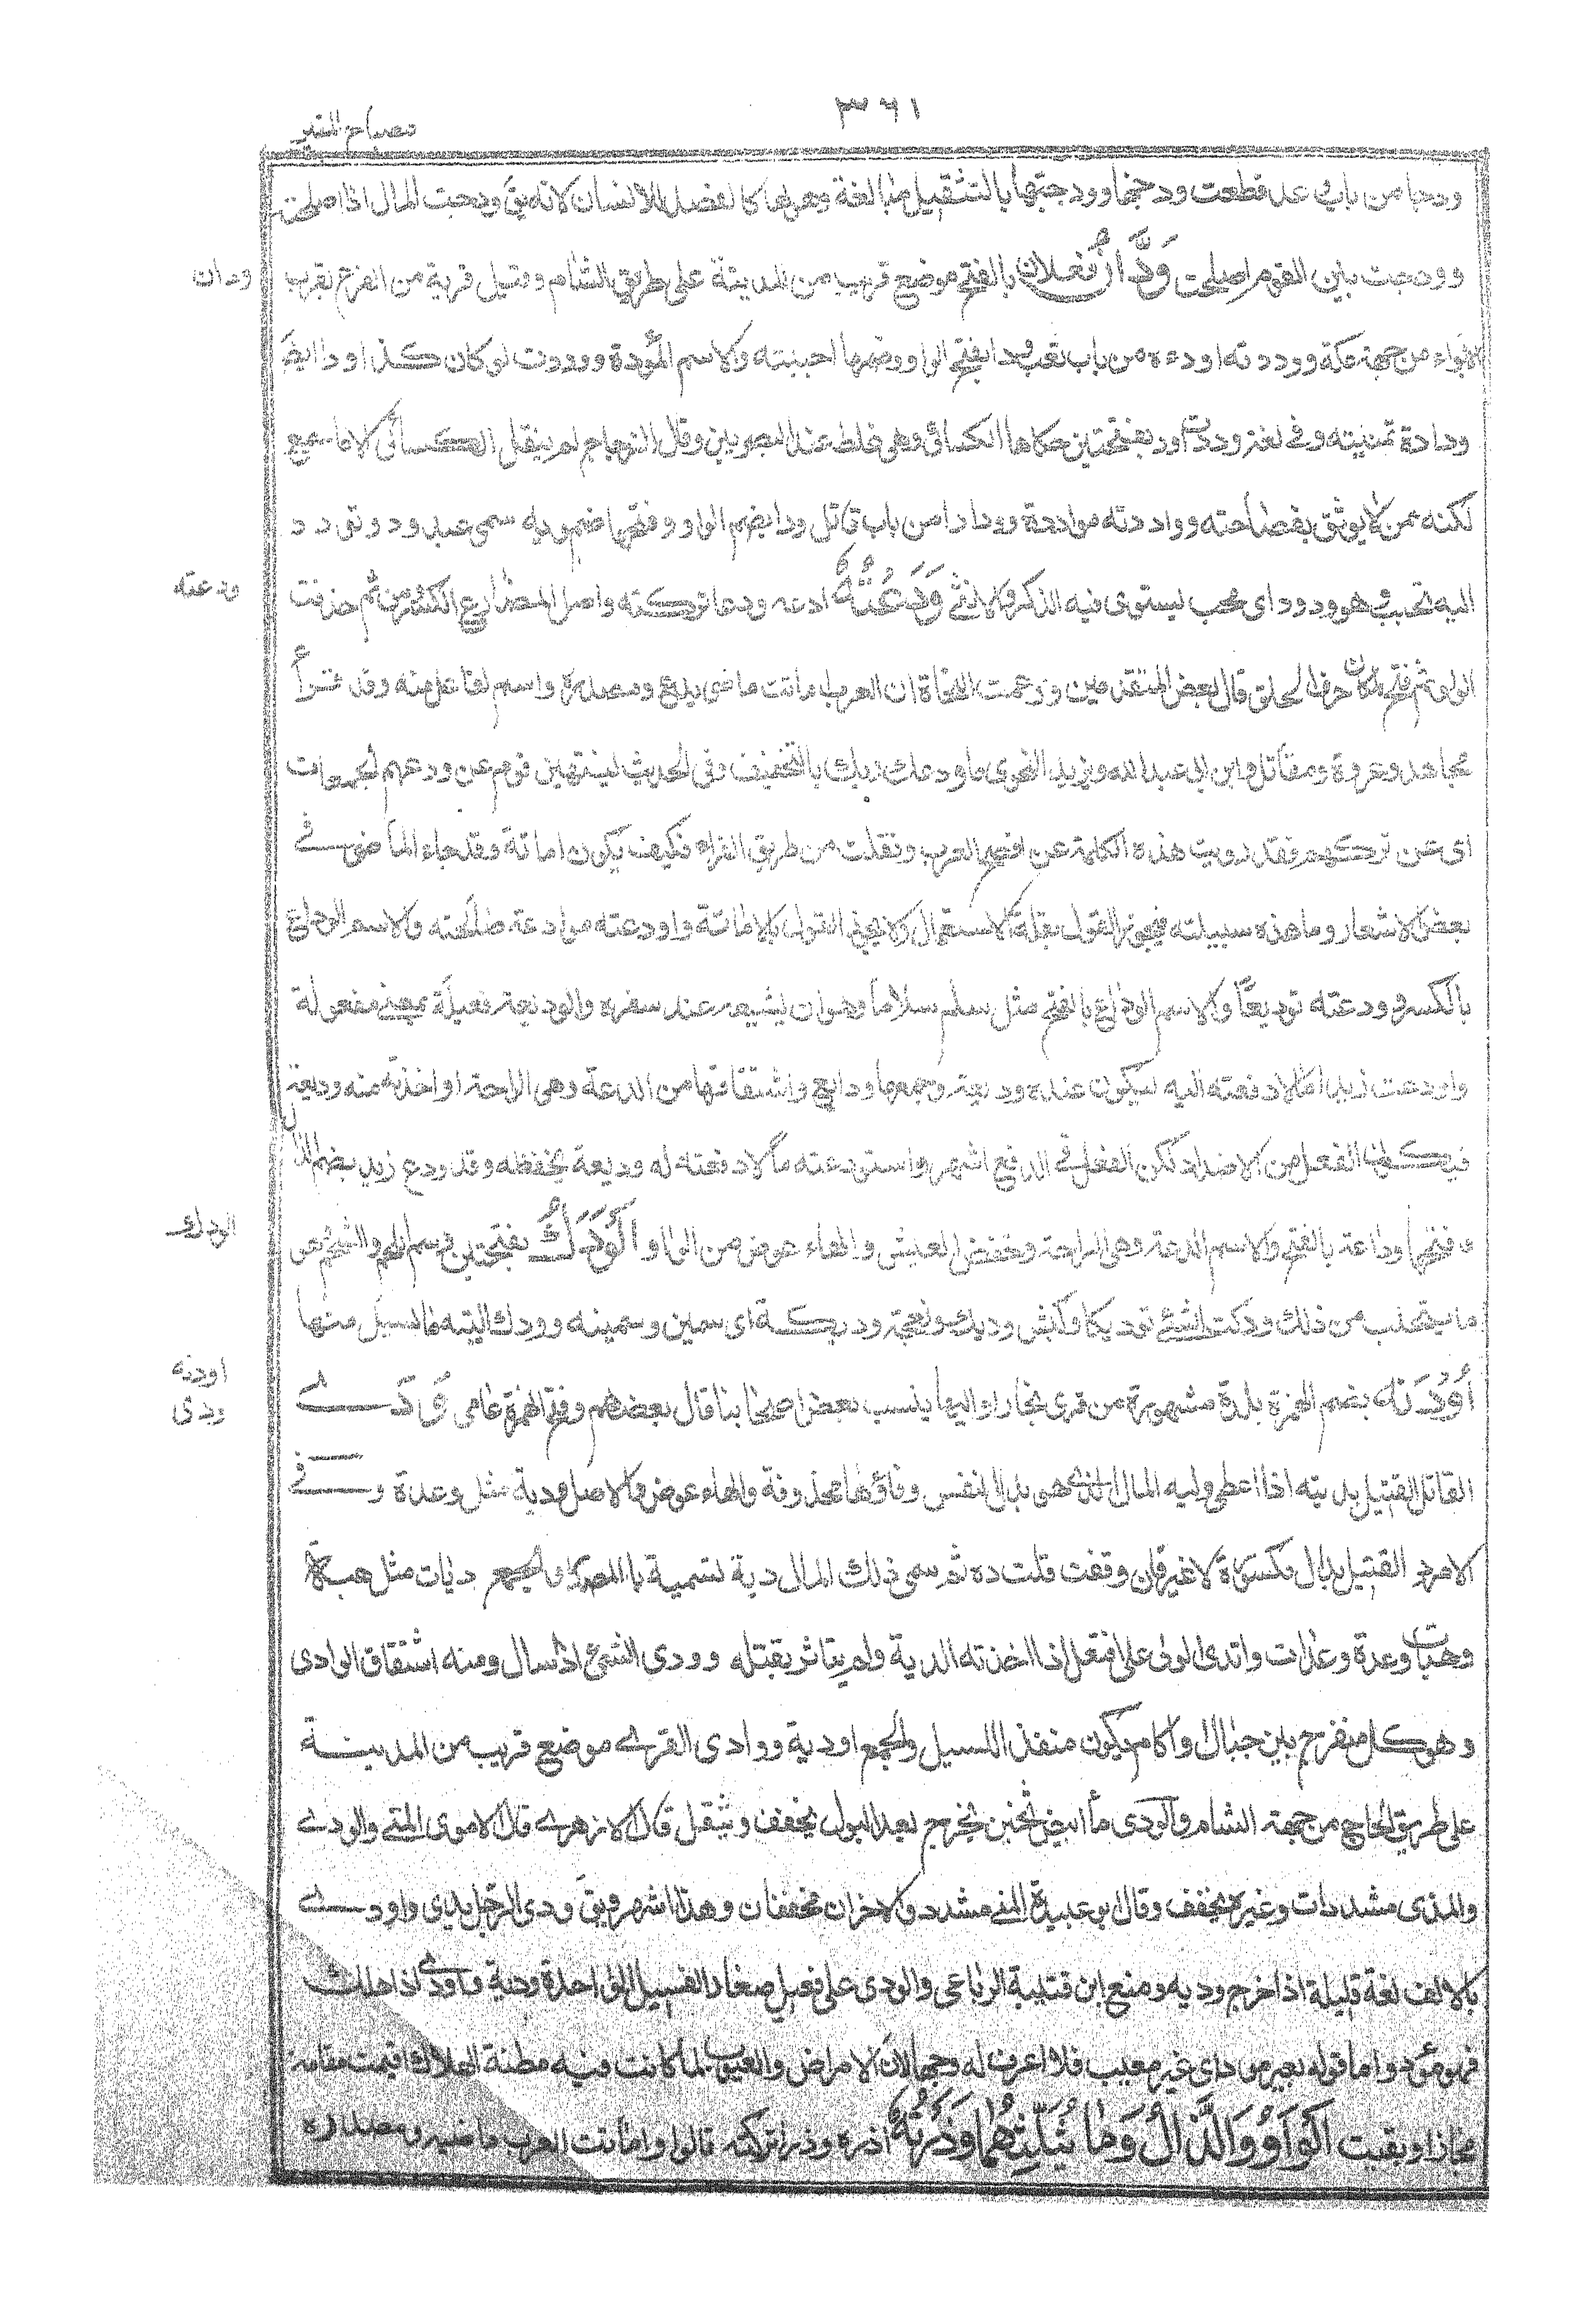 ٣٦١
مصباح المنير
ودجا من باب وعد قطعت ودجها وودجتها بالتثقيل مبالغة وهو لها كالفصد للانسان لانه يق ودجت المال اذا اصلحته
وودجت بين القوم اصلحت وَدَّانُ فعلان بالفتح موضع قريب من المدينة على طريق الشام وقيل قرية من الفرع بقرب
ودان
الابواء من جهة مكة ووددته اوده من باب تعب ودا بفتح الواو وضمها احببته والاسم المودة ووددت لو كان كذا اود ايضا
ودادة تمنيته وفي لغة وددت اود بفتحتين حكاها الكسائى وهى غلط عند البصريين وقال الزجاج لم ينقل الكسائى الا ما سمع
لكنه ممن لا يوثق بفصاحته وواددته موادة وودادا من باب قاتل وودا بضم الواو وفتحها صنم وبه سمى عبد ود وتودد
اليه تحبب وهو ودود اى محب يستوى فيه الذكر والانثى وَدَعْتُهُ ادعه ودعا تركته واصل المضارع الكسر ومن ثم حذفت
ودعته
الواو ثم فتح لمكان حرف الحلق قال بعض المتقدمين وزعمت النحاة ان العرب اماتت ماضى يدع ومصدره واسم الفاعل منه وقد قرأ
مجاهد وعروة ومقاتل وابن ابى عبد الله ويزيد النحوى ما ودعك ربك بالتخفيف وفى الحديث لينتهين قوم عن ودعهم الجمعات
اى عن تركهم فقد رويت هذه الكلمة عن افصح العرب ونقلت من طريق القراء فكيف يكون اماتة وقد جاء الماضى في
بعض الاشعار وما هذه سبيلته فيجوز القول بقلة الاستعمال ولا يجوز القول بالاماتة واودعته موادعة صالحته والاسم الوداع
بالكسر وودعته توديعًا والاسم الوداع بالفتح مثل سلم سلاما وهو ان يشيعه عند سفره والوديعة فعيلة بمعنى مفعولة
واودعت زيدا مالا دفعته اليه ليكون عنده وديعة وجمعها ودايع واشتقاقها من الدعة وهى الراحة او اخذته منه وديعة
فيكون الفعل من الاضداد لكن الفعل في الدفع اشهر واستودعته مالا دفعته له وديعة يحفظه وقد ودع زيد بضم الدال
وفتحها وداعة بالفتح والاسم الدعة وهى الراحة وخفض العيش والهاء عوض من الواو اَلْوَدَكُ بفتحتين دسم اللحم والشحم وهو
الودك
ما يتحلب من ذلك ودكت الشئ توديكا وكبش وديك ونعجة وديكة اى سمين وسمينه وودك الميتة ما يسيل منها
اودنه
أُوْدَنَهُ بضم الهمزة بلدة مشهورة من قرى بخارا واليها ينسب بعض اصحابنا قال بعضهم وفتح الهمزة عامى وَدَى
ودى
القاتل القتيل يديه دية اذا اعطى وليه المال الذي هو بدل النفس وفاؤها محذوفة والهاء عوض والاصل ودية مثل وعدة وفي
الامر د القتيل بدال مكسورة لا غير فان وقفت قلت ده ثم سمى ذلك المال دية تسمية بالمصدر والجمع ديات مثل هبة
وهبات وعدة وعدات واتدى الولى على افتعل اذا اخذ الدية ولم يثأر بقتله وودى الشئ اذا سال ومنه اشتقاق الوادى
وهو كل منفرج بين جبال وآكام يكون منفذا للسيل والجمع اودية ووادى القرى موضع قريب من المدينة
على طريق الحاج من جهة الشام والودى ماء ابيض ثخين يخرج بعد البول يخفف ويثقل قال الازهرى قال الاموى المنى والودى
والمذى مشددات وغيره يخفف وقال ابو عبيدة المنى مشدد والاخران مخففان وهذا اشهر ويق ودى الرجل يدى واودى
بالالف لغة قليلة اذا خرج وديه ومنع ابن قتيبة الرباعى والودى على فعيل صغار الفسيل الواحدة ودية واودى اذا هلك
فهو مود واما قوله بعير مود اى غير معيب فلا اعرف له وجها الا ان الامراض والعيوب لما كانت فيه مظنة الهلاك اقيمت مقامه
مجازا وبقيت اَلْوَاوُ وَالذَّالُ وَمَا يُثَلِّثُهُمَا وَذَرْتُهُ اذره وذرا تركته قالوا واماتت العرب ماضيه ومصدره